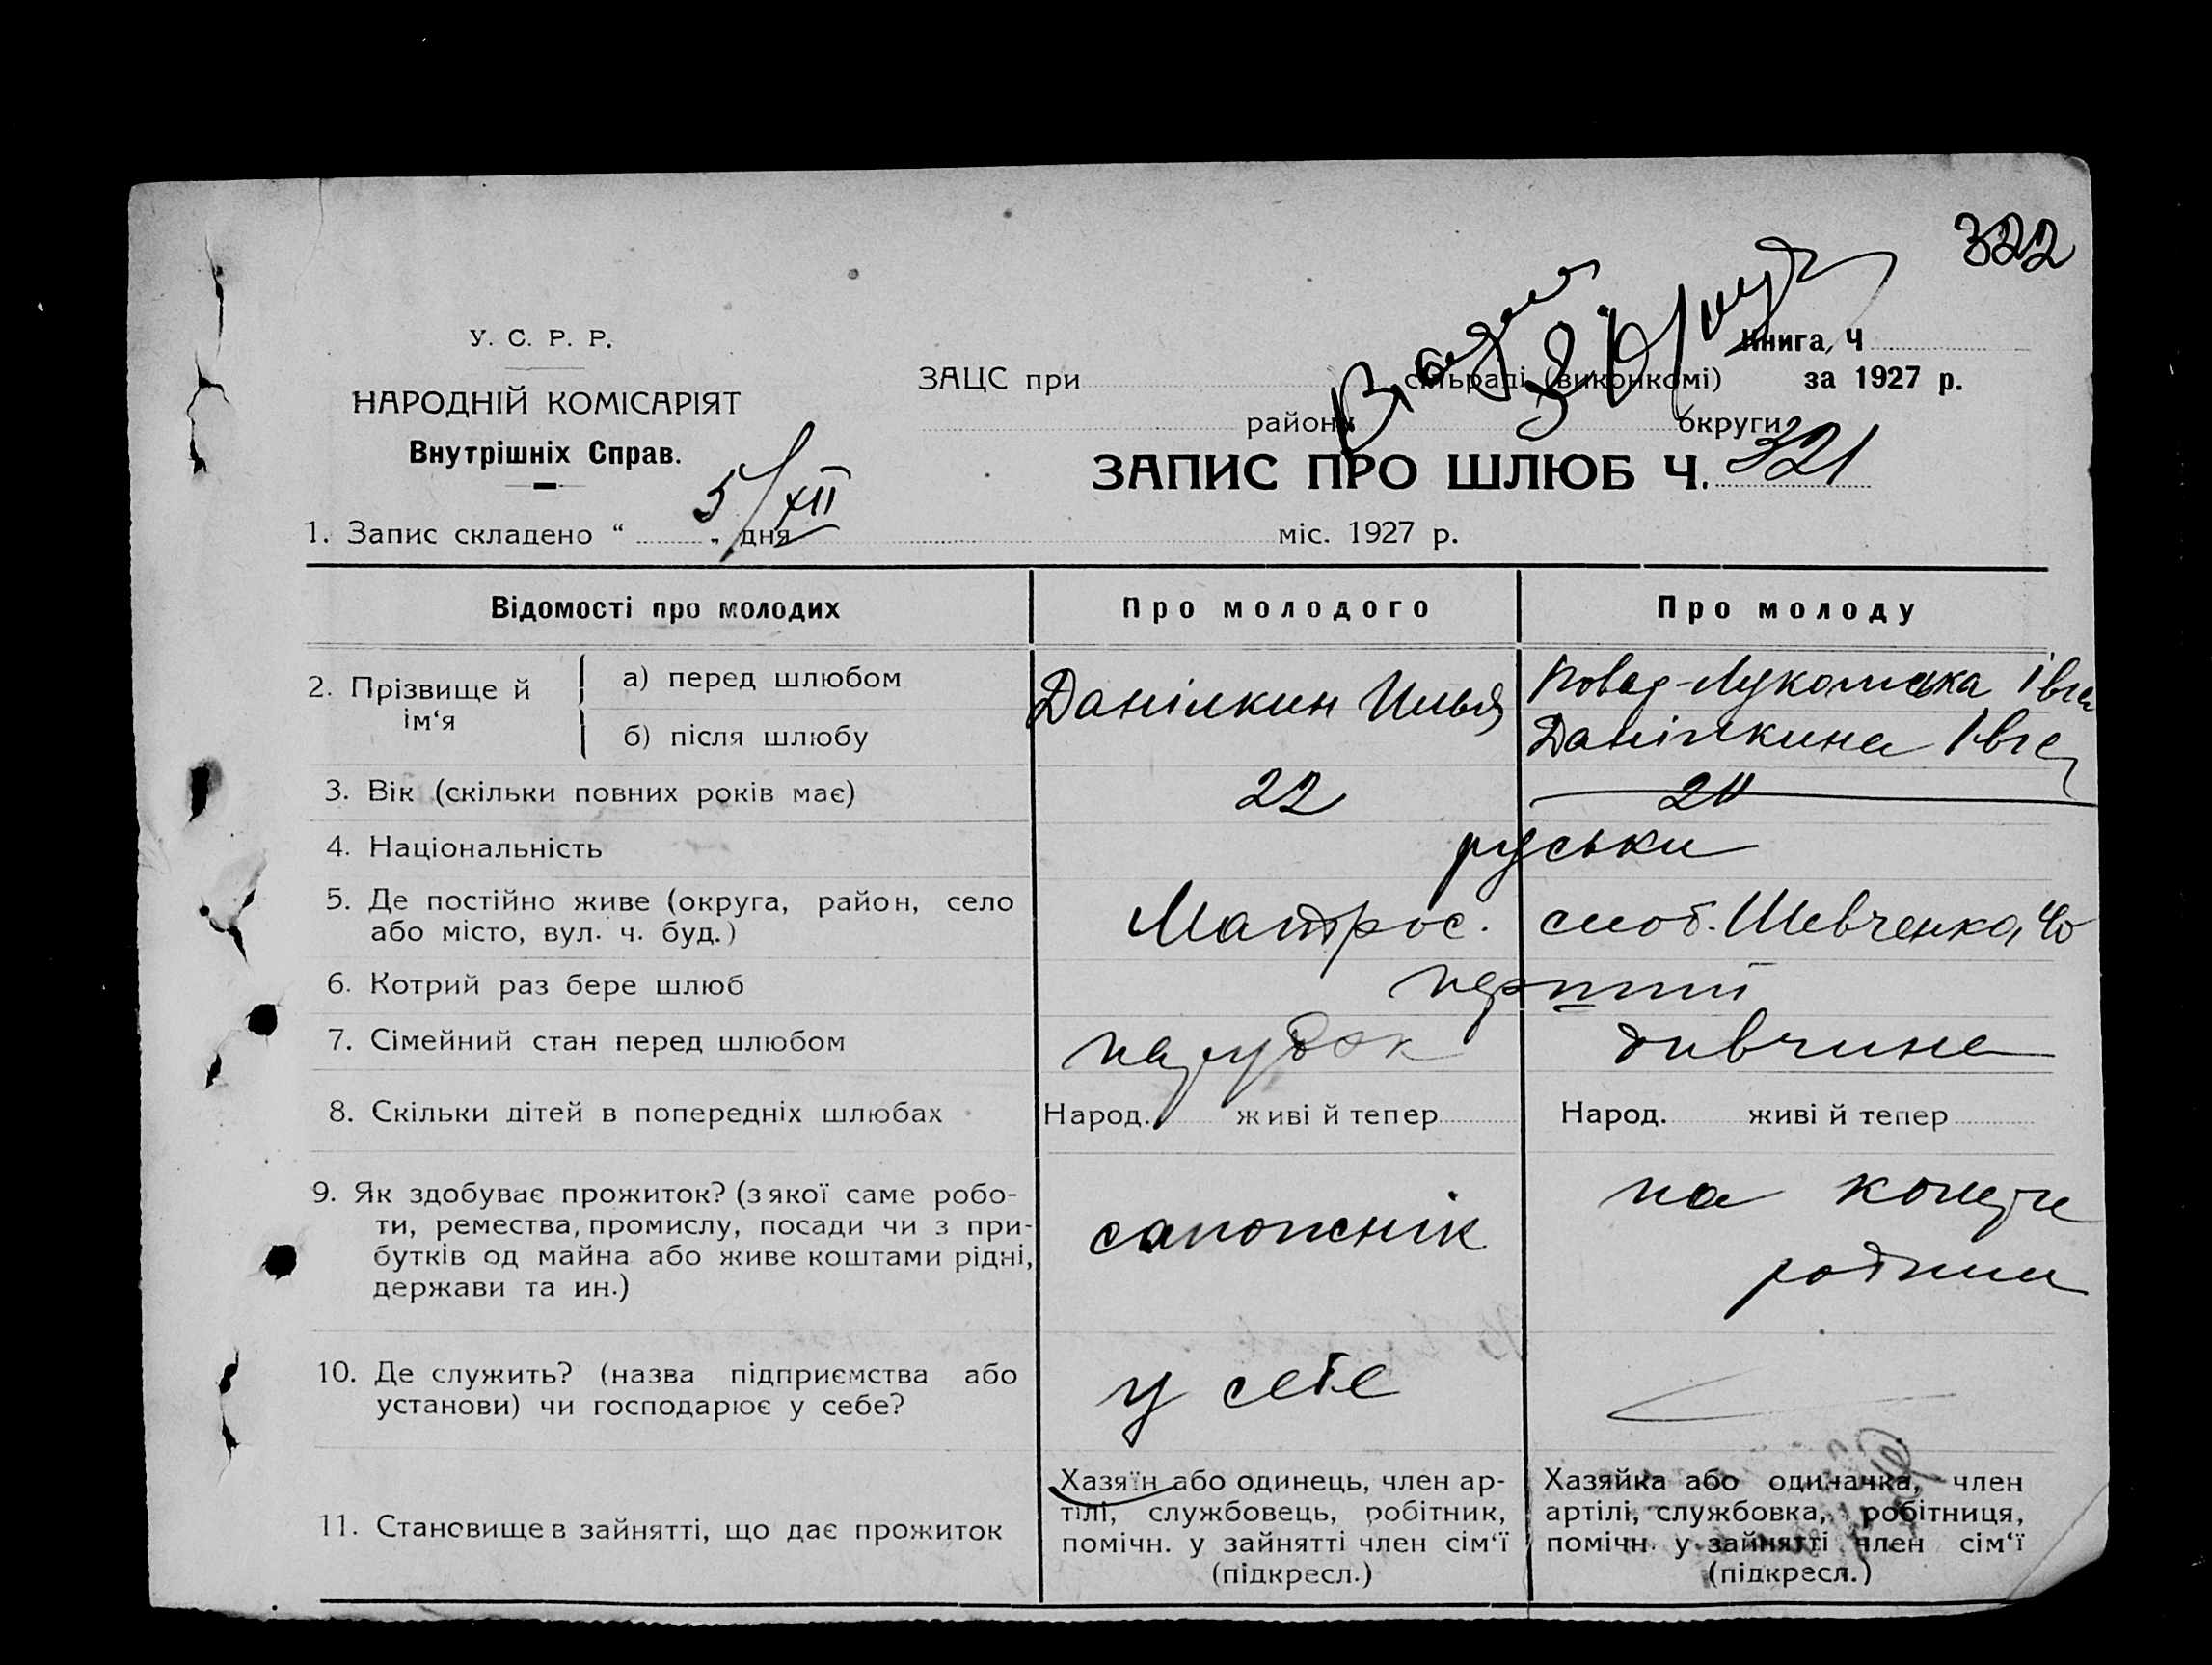 322
У. С. Р. Р.
НАРОДНІЙ КОМІСАРІЯТ
Внутрішніх Справ.
Книга, Ч
ЗАЦС при сільраді (виконкомі) за 1927 р.
району округи
ЗАПИС ПРО ШЛЮБ Ч. 321
1. Запис складено “ 5/XII „ дня міс. 1927 р.
Відомості про молодих Про молодого Про молоду
2. Прізвище й ім‘я
а) перед шлюбом Данілкин Илья
б) після шлюбу Данілкина
3. Вік (скільки повних років має) 22
4. Національність руськи
5. Де постійно живе (округа, район, село Матрос. слоб. Шевченка,
або місто, вул. ч. буд.)
6. Котрий раз бере шлюб перший
7. Сімейний стан перед шлюбом парубок дивчина
8. Скільки дітей в попередніх шлюбах Народ. живі й тепер Народ. живі й тепер
9. Як здобуває прожиток? (з якої саме робо-
ти, ремества, промислу, посади чи з при-
бутків од майна або живе коштами рідні,
держави та ин.)
сапожнік
на
родини
10. Де служить? (назва підприємства або
установи) чи господарює у себе?
у себе
11. Становище в зайнятті, що дає прожиток
Хазяїн або одинець, член ар-
тілі, службовець, робітник,
помічн. у зайнятті член сім‘ї
(підкресл.)
Хазяйка або одиначка, член
артілі, службовка, робітниця,
помічн. у зайнятті член сім‘ї
(підкресл.)